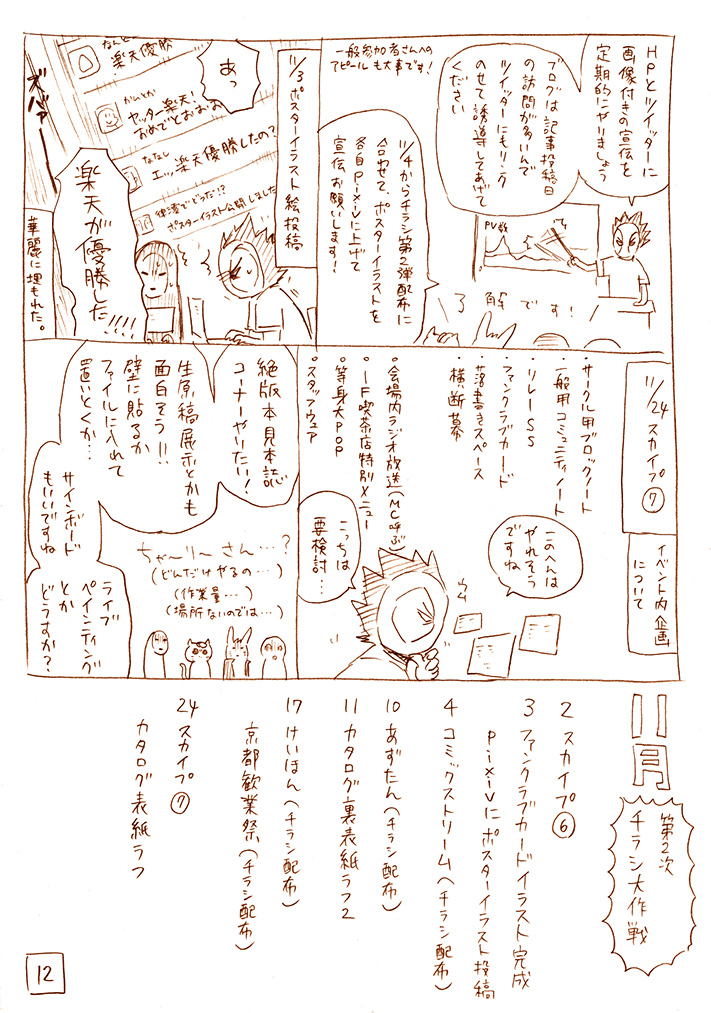 HPとツイッターに
画像付きの宣伝を
定期的にやりましょう
ブログは記事投稿日
の訪問が多いんで
ツイッターにもリンク
のせて誘導してあげて
ください
PV数
一般参加者さんへの
アピールも大事です!
11/4からチラシ第2弾配布に
合わせて、ポスターイラストを
各自pixivに上げて
宣伝お願いします!
了解です!
11/3 ポスターイラスト絵投稿
なんとか
楽天優勝
かんとか
ヤッター楽天!
おめでとおおお
ななし
エッ、楽天優勝したの?
ポスターイラスト公開しました
あっ
ズバァー
楽天が優勝した!!!!
華麗に埋もれた。
11/24 スカイプ⑦
イベント内企画
について
・サークル用ブロックノート
・一般用コミュニティノート
・リレーSS
・ファンクラブカード
・落書きスペース
・横断幕
このへんは
やれそう
ですね
・会場内ラジオ放送(MC呼ぶ)
・IF喫茶店特別メニュー
・等身大POP
・スタッフウェア
こっちは
要検討…
絶版本見本誌
コーナーやりたい!
生原稿展示とかも
面白そう!!
壁に貼るか
ファイルに入れて
置いとくか…
サインボード
もいいですね
ライブ
ペインティング
とか
どうすか?
ちゃーりーさん…?
(どんだけやるの…)
(作業量…)
(場所ないのでは…)
11月
第2次
チラシ大作戦
2 スカイプ⑥
3 ファンクラブカードイラスト完成
pixivにポスターイラスト投稿
4 コミックストリーム(チラシ配布)
10 あずたん(チラシ配布)
11 カタログ裏表紙ラフ2
17 けいほん(チラシ配布)
京都歓業祭(チラシ配布)
24 スカイプ⑦
カタログ表紙ラフ
12